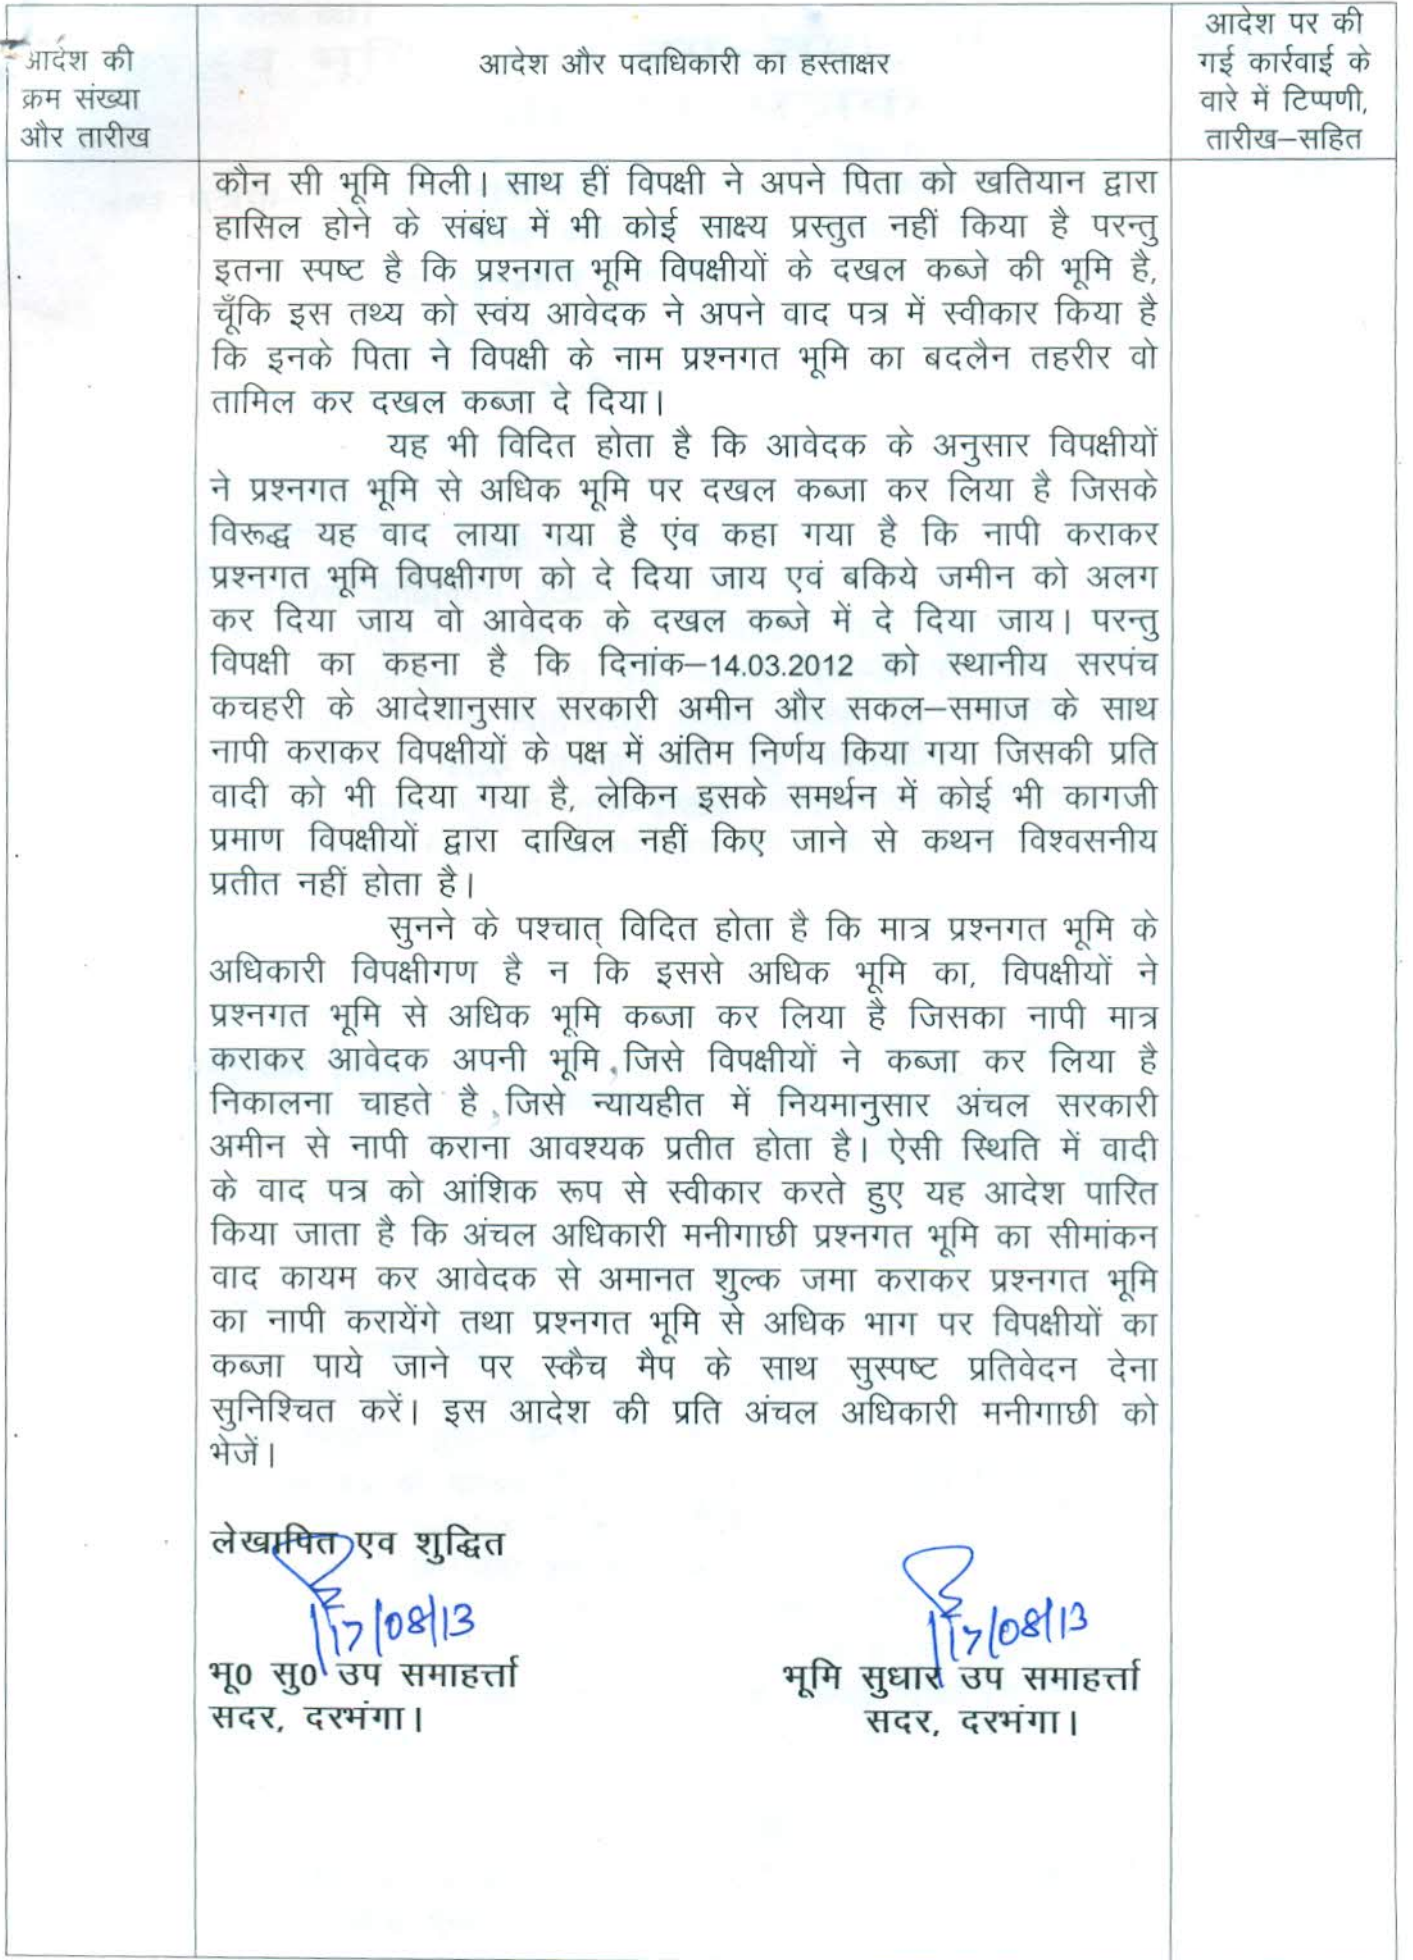 आदेश की
क्रम संख्या
और तारीख
आदेश और पदाधिकारी का हस्ताक्षर
आदेश पर की
गई कार्रवाई के
वारे में टिप्पणी,
तारीख–सहित
कौन सी भूमि मिली। साथ हीं विपक्षी ने अपने पिता को खतियान द्वारा
हासिल होने के संबंध में भी कोई साक्ष्य प्रस्तुत नहीं किया है परन्तु
इतना स्पष्ट है कि प्रश्नगत भूमि विपक्षीयों के दखल कब्जे की भूमि है,
चूँकि इस तथ्य को स्वंय आवेदक ने अपने वाद पत्र में स्वीकार किया है
कि इनके पिता ने विपक्षी के नाम प्रश्नगत भूमि का बदलैन तहरीर वो
तामिल कर दखल कब्जा दे दिया।
यह भी विदित होता है कि आवेदक के अनुसार विपक्षीयों
ने प्रश्नगत भूमि से अधिक भूमि पर दखल कब्जा कर लिया है जिसके
विरूद्ध यह वाद लाया गया है एंव कहा गया है कि नापी कराकर
प्रश्नगत भूमि विपक्षीगण को दे दिया जाय एवं बकिये जमीन को अलग
कर दिया जाय वो आवेदक के दखल कब्जे में दे दिया जाय। परन्तु
विपक्षी का कहना है कि दिनांक–14.03.2012 को स्थानीय सरपंच
कचहरी के आदेशानुसार सरकारी अमीन और सकल–समाज के साथ
नापी कराकर विपक्षीयों के पक्ष में अंतिम निर्णय किया गया जिसकी प्रति
वादी को भी दिया गया है, लेकिन इसके समर्थन में कोई भी कागजी
प्रमाण विपक्षीयों द्वारा दाखिल नहीं किए जाने से कथन विश्वसनीय
प्रतीत नहीं होता है।
सुनने के पश्चात् विदित होता है कि मात्र प्रश्नगत भूमि के
अधिकारी विपक्षीगण है न कि इससे अधिक भूमि का, विपक्षीयों ने
प्रश्नगत भूमि से अधिक भूमि कब्जा कर लिया है जिसका नापी मात्र
कराकर आवेदक अपनी भूमि, जिसे विपक्षीयों ने कब्जा कर लिया है
निकालना चाहते है, जिसे न्यायहीत में नियमानुसार अंचल सरकारी
अमीन से नापी कराना आवश्यक प्रतीत होता है। ऐसी स्थिति में वादी
के वाद पत्र को आंशिक रूप से स्वीकार करते हुए यह आदेश पारित
किया जाता है कि अंचल अधिकारी मनीगाछी प्रश्नगत भूमि का सीमांकन
वाद कायम कर आवेदक से अमानत शुल्क जमा कराकर प्रश्नगत भूमि
का नापी करायेंगे तथा प्रश्नगत भूमि से अधिक भाग पर विपक्षीयों का
कब्जा पाये जाने पर स्कैच मैप के साथ सुस्पष्ट प्रतिवेदन देना
सुनिश्चित करें। इस आदेश की प्रति अंचल अधिकारी मनीगाछी को
भेजें।
लेखापित एव शुद्धित
17/08/13
भू0 सु0 उप समाहर्त्ता
सदर, दरभंगा।
17/08/13
भूमि सुधार उप समाहर्त्ता
सदर, दरभंगा।